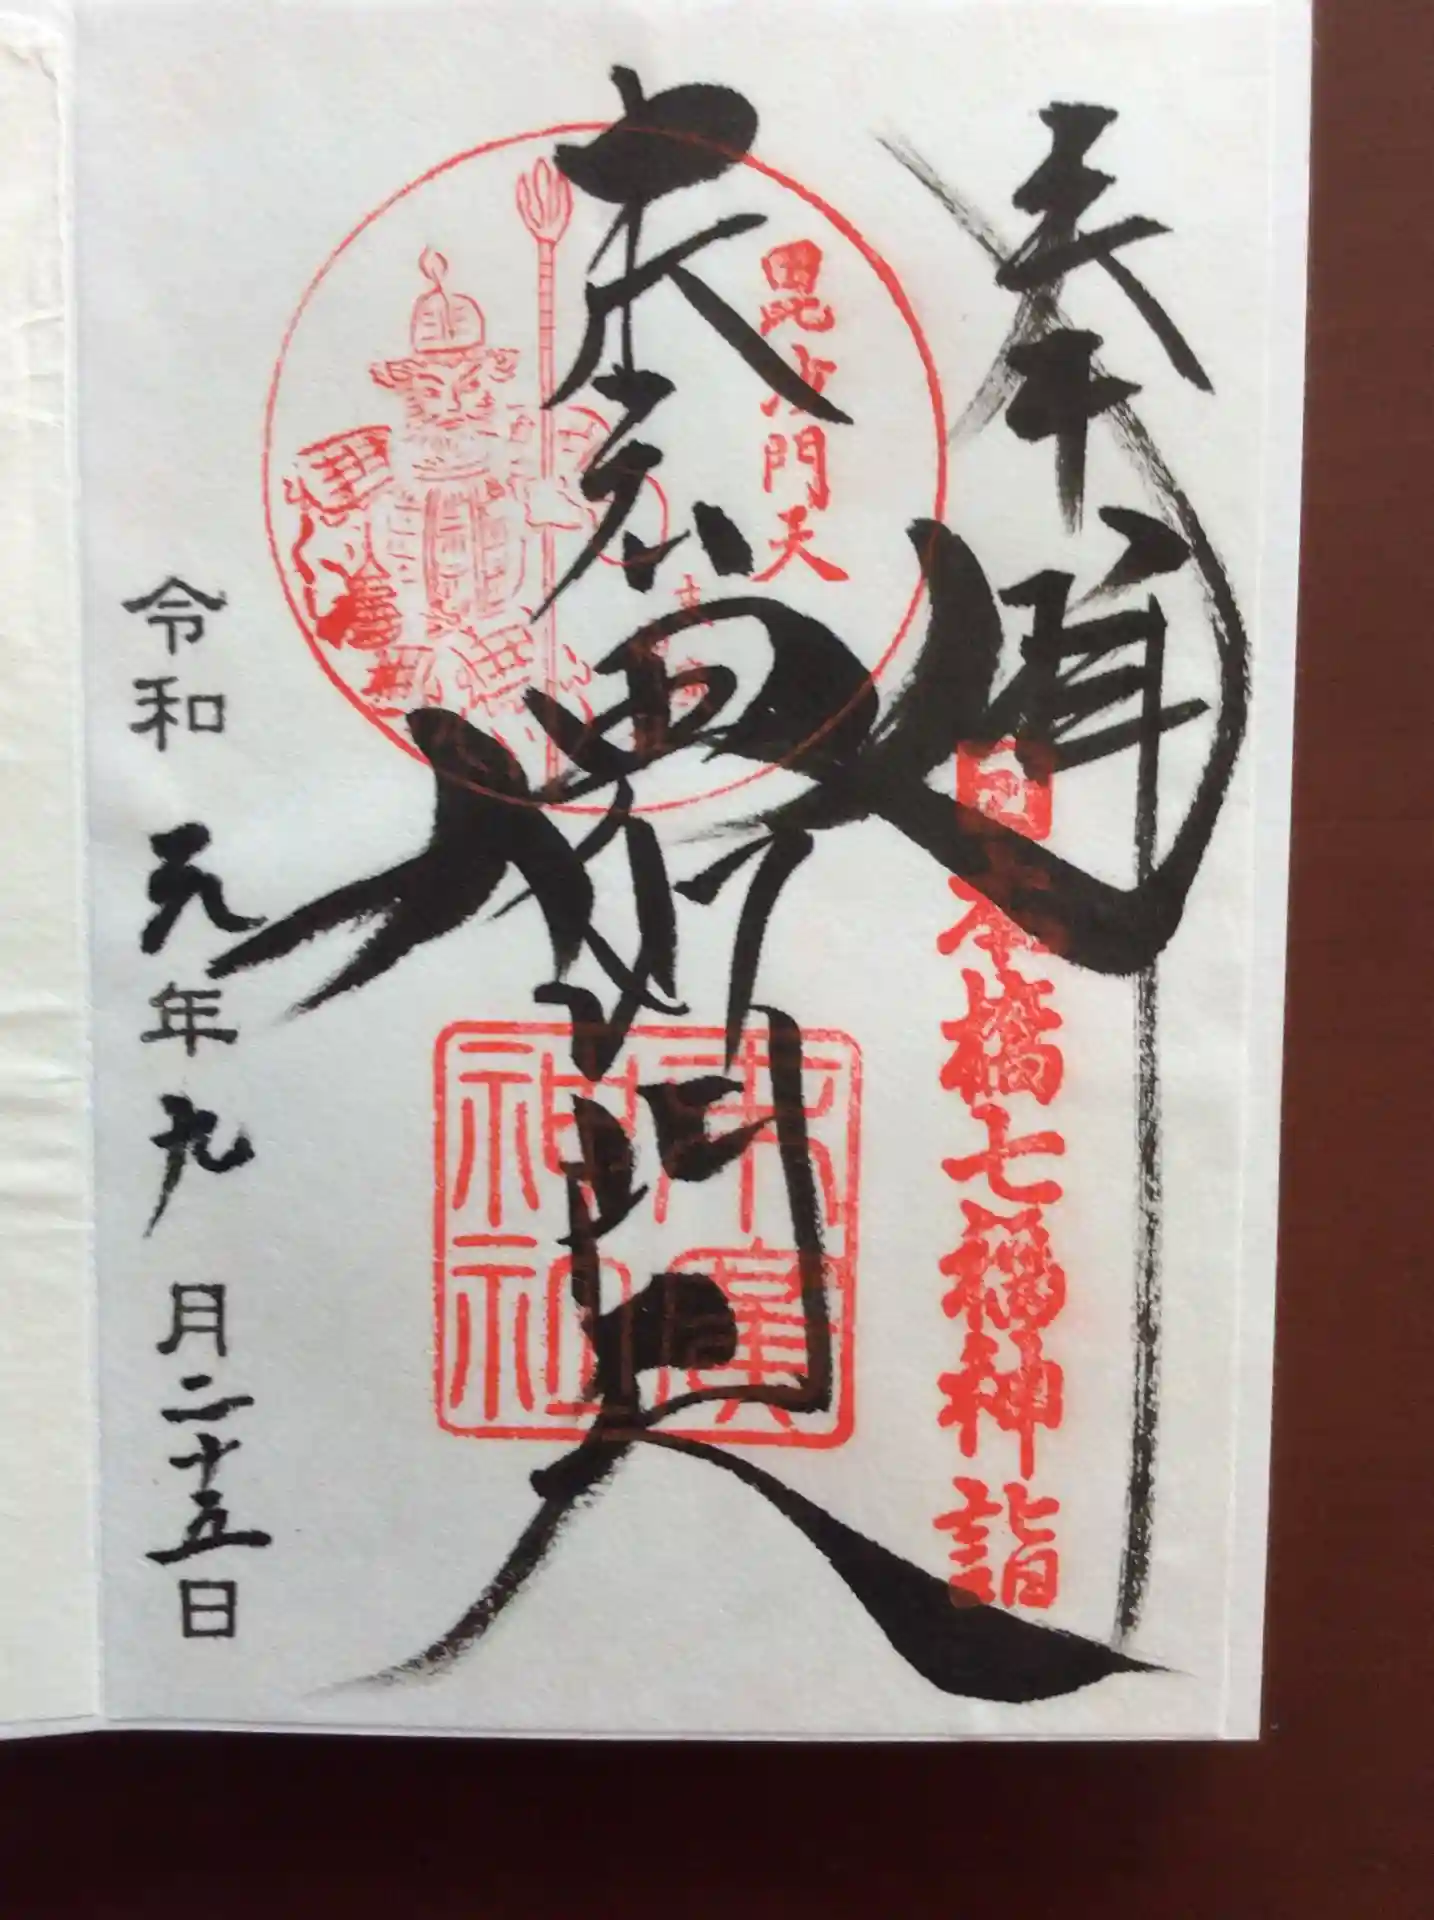 奉拝
日本橋七福神詣
毘沙門天
末廣
神社
令和元年九月二十五日